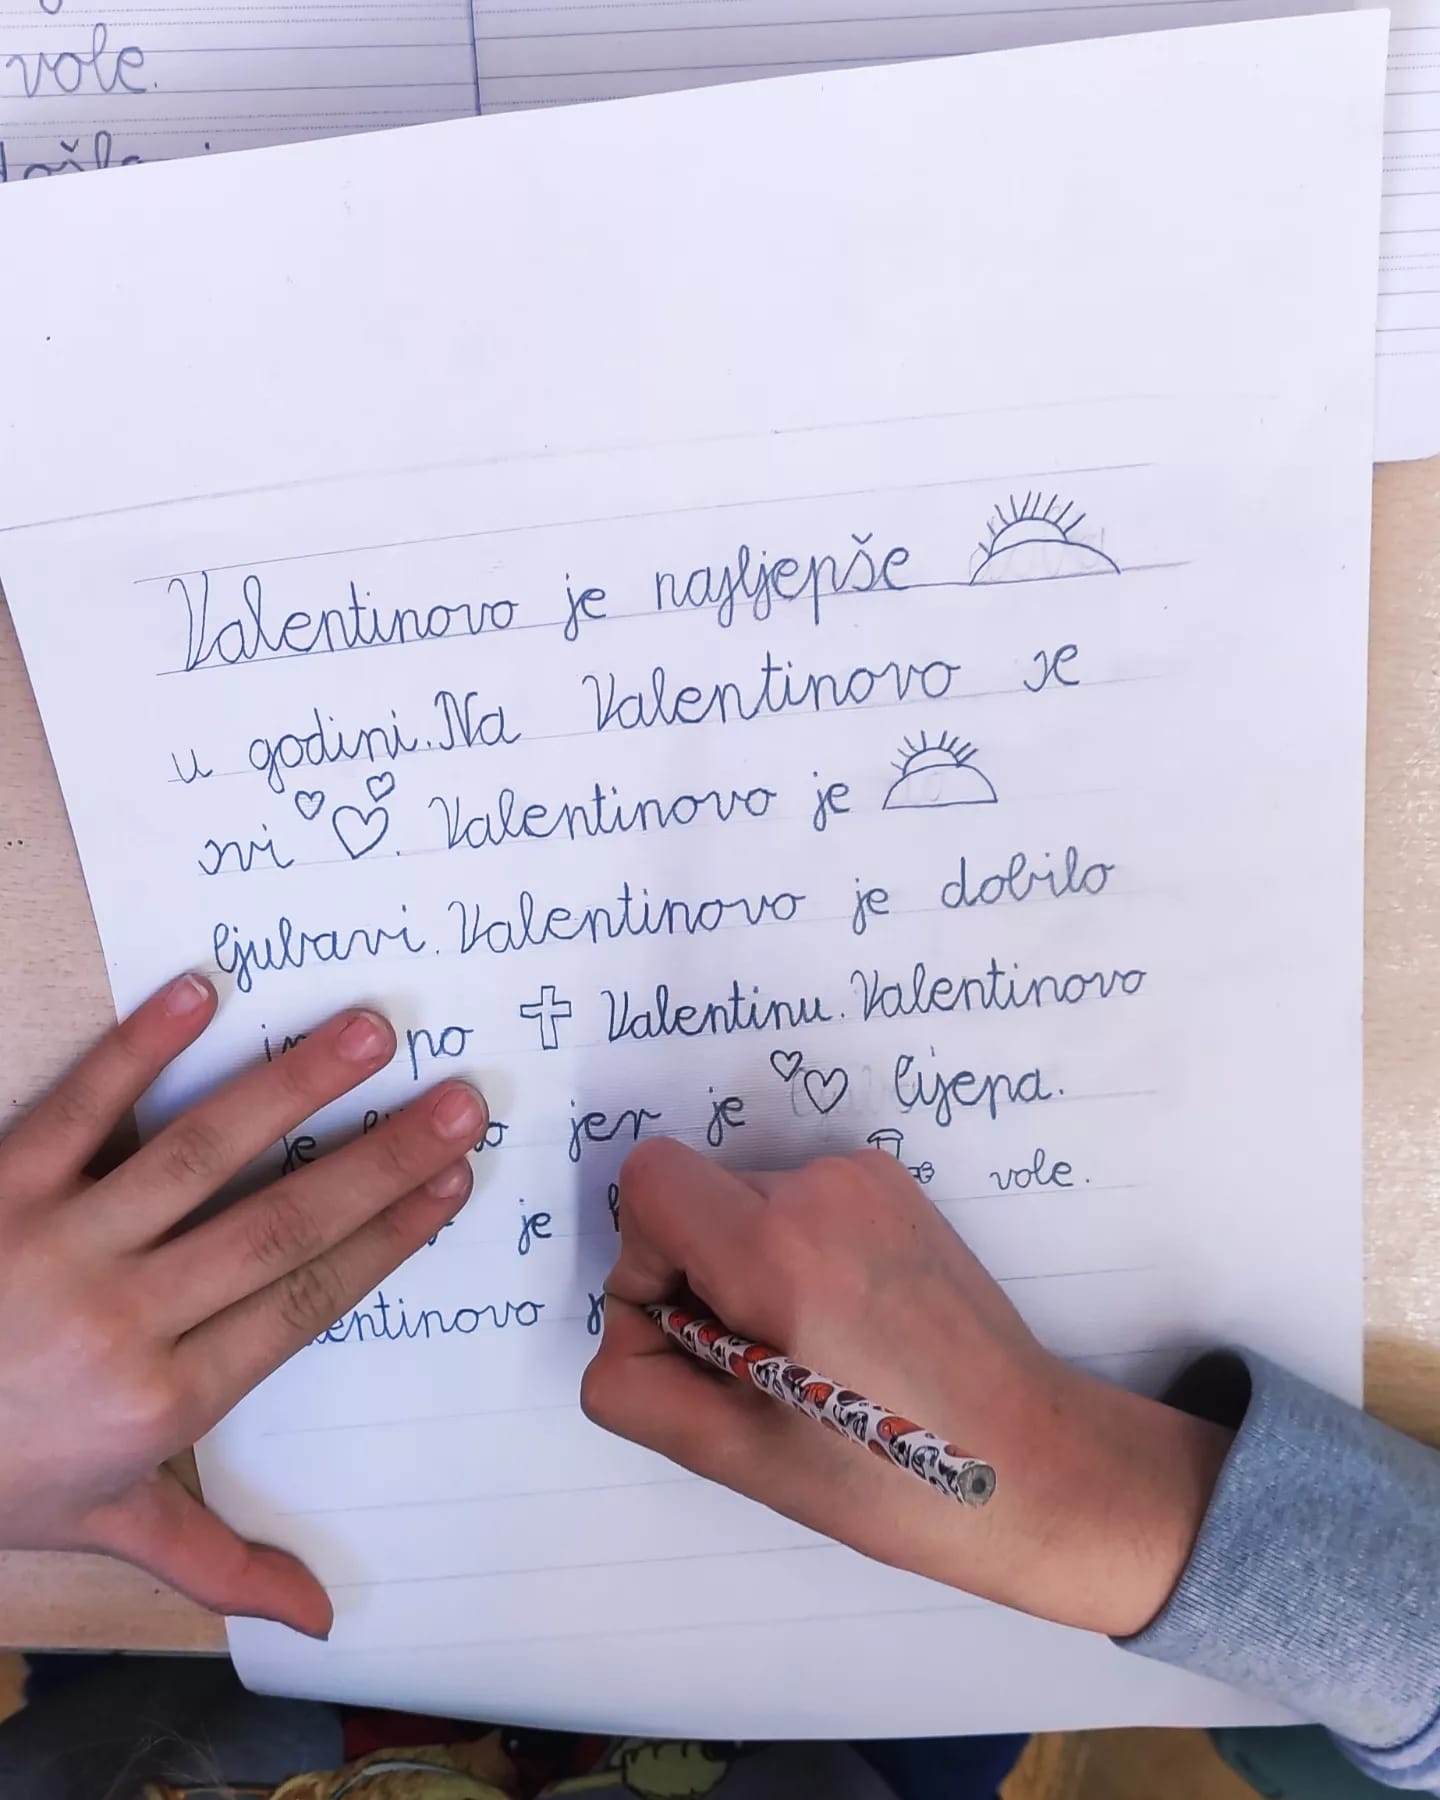 vole.
Valentinovo je najljepše
u godini. Na Valentinovo se
svi . Valentinovo je
ljubavi. Valentinovo je dobilo
po Valentinu. Valentinovo
je jer je lijepa.
je vole.